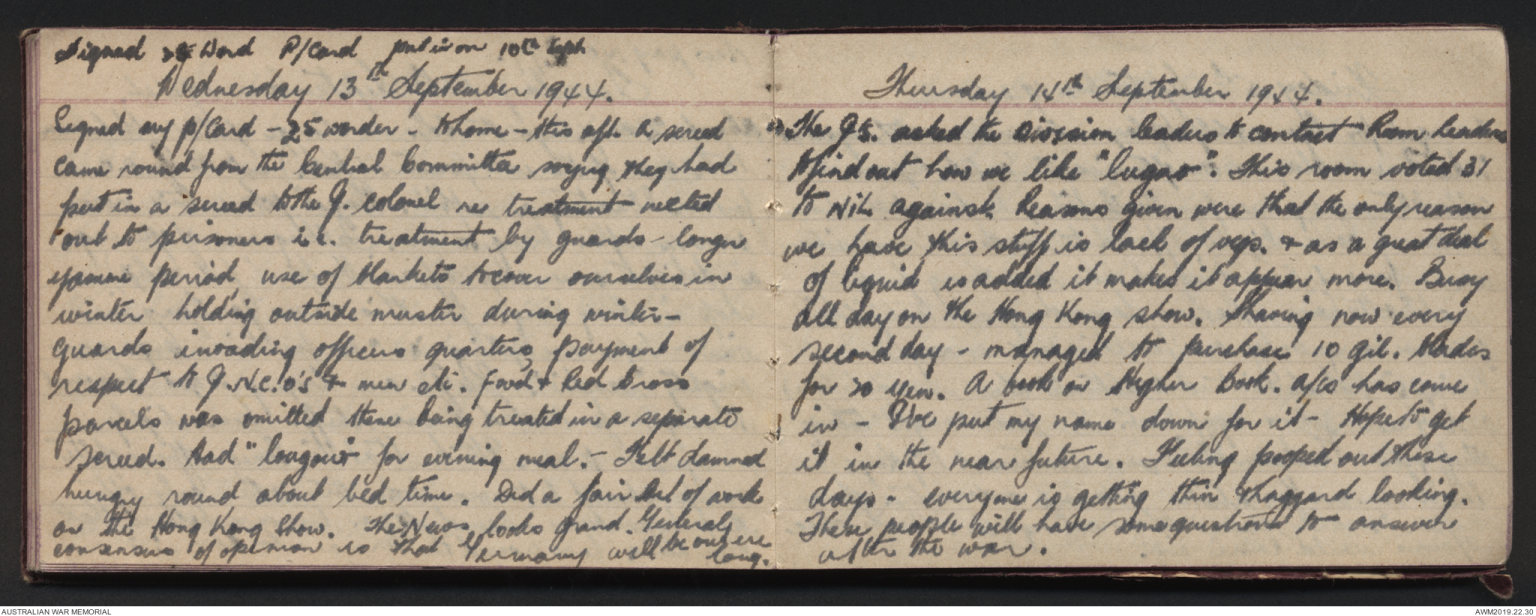 Signed 25 Word P/Card put in on 10th Sept
Wednesday 13th September 1944.
Signed my p/Card - 25 worder - to home - this aft. A screed
came round from the Central Committee saying they had
put in a screed to the J. colonel re treatment meeted
out to prisoners i.e. treatment by guards - longer
yasume period use of blankets to cover ourselves in
winter holding outside muster during winter -
guards invading officers quarters, payment of
respect to J.N.C.O's & men etc. Food & Red Cross
parcels was omitted these being treated in a separate
screed. Had "lougow" for evening meal. - Felt damned
hungry round about bed time. Did a fair bit of work
on the Hong Kong Show. The News looks grand. General
consensus of opinion is that Germany will be out ere
long.
Thursday 14th September 1944.
The J's. asked the Division leaders to contact Room leaders
to find out how we like "lugao". This room voted 31
to Nil against. Reasons given were that the only reason
we have this stuff is lack of vegs. & as a great deal
of liquid is added it makes it appear more. Busy
all day on the Hong Kong show. Shaving now every
second day - managed to purchase 10 gil. blades
for 20 yen. A book on Higher Book. a/cs has come
in - I've put my name down for it - Hope to get
it in the near future. Feeling pooped out these
days - everyone is getting thin & haggard looking.
These people will have some questions to answer
after the war.
AUSTRALIAN WAR MEMORIAL
AWM2019.22.30